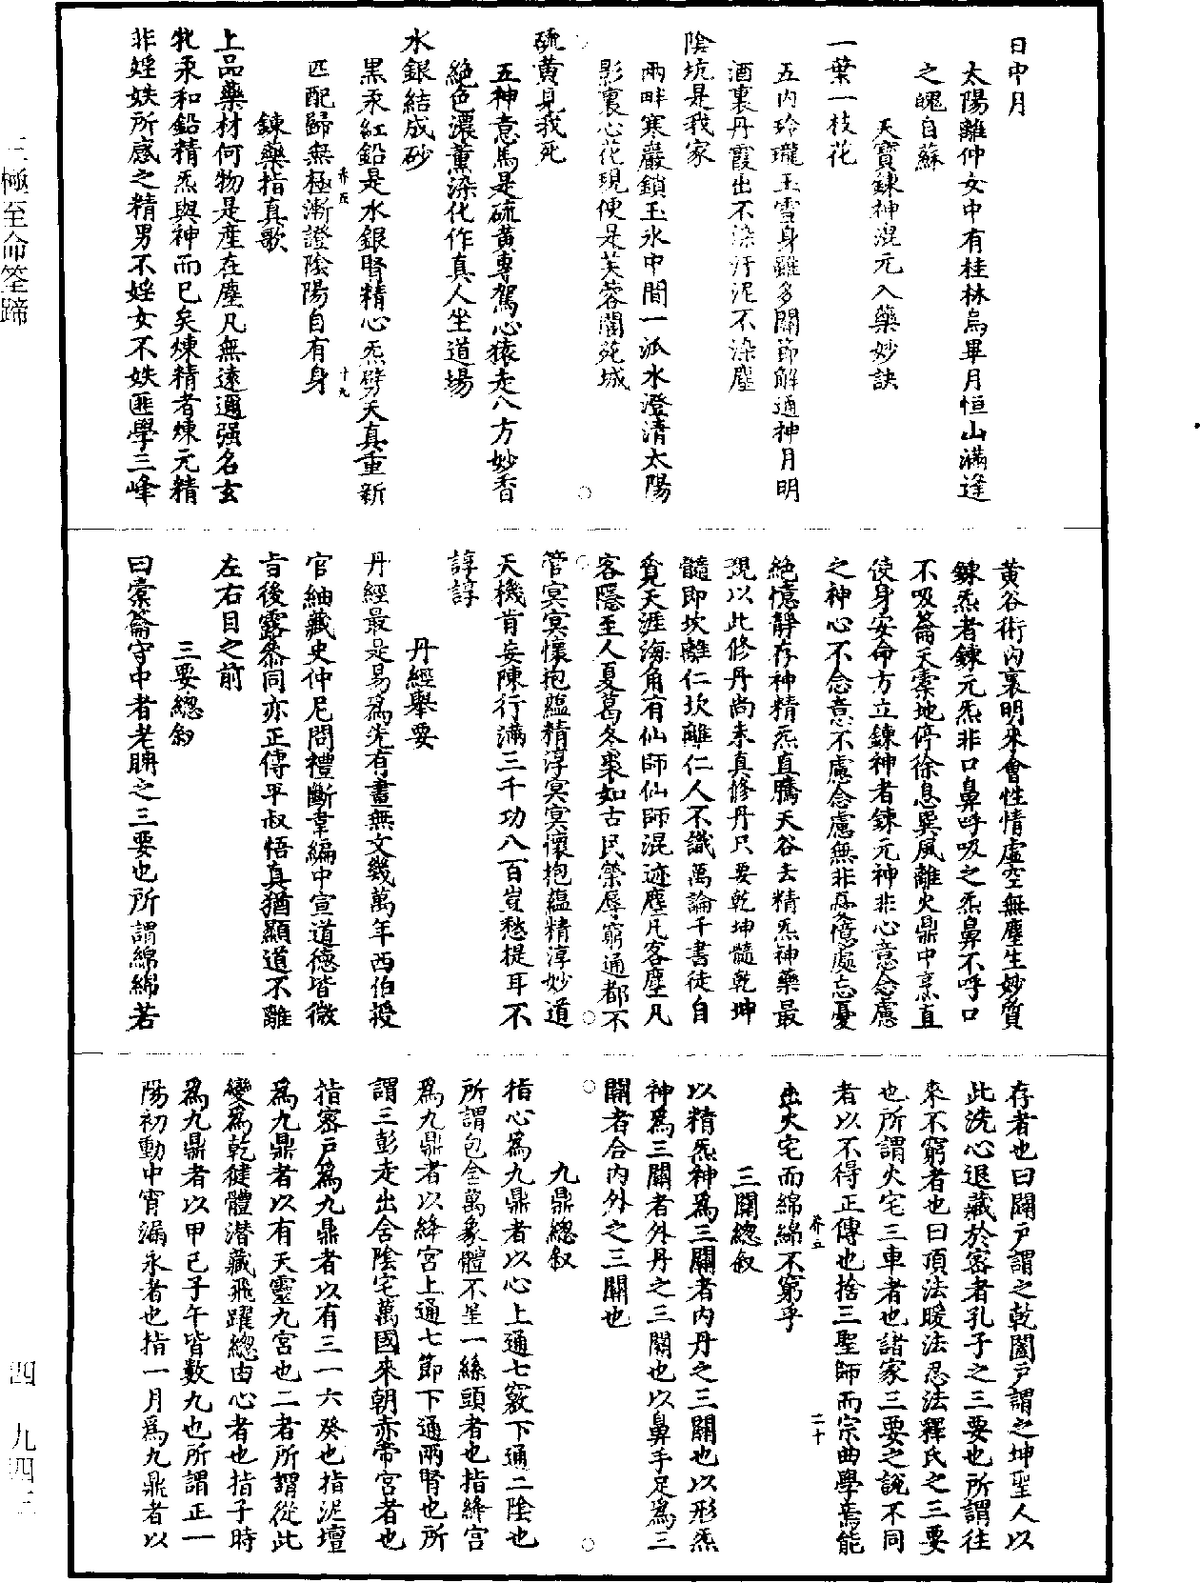 日中月
太陽離仲女中有桂林烏畢月恒山滿逢
之魄自蘇
天寶鍊神混元入藥妙訣
一葉一枝花
五内玲瓏玉雪身雖多關節解通神月明
酒裏丹霞出不染汙泥不染塵
陰坑是我家
兩畔寒巖鎖玉氷中間一派水澄清太陽
影裏心花現便是芙蓉閬苑城
硫黄見我死
五神意馬是硫黄專駕心猿走八方妙香
絶色濃薰染化作真人坐道場
水銀結成砂
黑汞紅鉛是水銀腎精心炁劈天真重新
匹配歸無極漸證陰陽自有身
鍊藥指真歌
上品藥材何物是產在塵凡無遠邇强名玄
牝汞和鉛精炁與神而已矣煉精者煉元精
非婬妷所感之精男不婬女不妷匪學三峰
黄谷術内裏明來會性情虛空無塵生妙質
鍊炁者鍊元炁非口鼻呼吸之炁鼻不呼口
不吸籥天橐地停徐息巽風離火鼎中烹直
使身安命方立鍊神者鍊元神非心意念慮
之神心不念意不慮念慮無非惡憶處忘憂
絶憶靜存神精炁直騰天谷去精炁神藥最
親以此修丹尚未真修丹只要乾坤髓乾坤
髓即坎離仁坎離仁人不識萬論千書徒自
覓天涯海角有仙師仙師混迹塵凡客塵凡
客隱至人夏葛冬裘如古民榮辱窮通都不
管冥冥懷抱蘊精淳冥冥懷抱蘊精淳妙道
天機肯妄陳行滿三千功八百豈愁提耳不
諄諄
丹經舉要
丹經最是易爲先有畫無文幾萬年西伯授
官紬藏史仲尼問禮斷韋編中宣道德堦微
旨後露叅同亦正傳平叔悟真猶顯道不離
左右目之前
三要總叙
曰橐籥守中者老聃之三要也所謂綿綿若
存者也曰闢戸謂之乾闔戸謂之坤聖人以
此洗心退藏於密者孔子之三要也所謂往
來不窮者也曰頂法暖法忍法釋氏之三要
也所謂火宅三車者也諸家三要之説不同
者以不得正傳也捨三聖師而宗曲學焉能
出火宅而綿綿不窮乎
三關總叙
以精炁神爲三關者内丹之三關也以形炁
神爲三關者外丹之三關也以鼻手足爲三
關者合内外之三關也
九鼎總叙
指心爲九鼎者以心上通七竅下通二陰也
所謂包含萬象體不呈一絲頭者也指絳宫
爲九鼎者以絳宫上通七節下通兩腎也所
謂三彭走出含陰宅萬國來朝赤帝宫者也
指密戸爲九鼎者以有三一六癸也指泥壇
爲九鼎者以有天靈九宫也二者所謂從此
變爲乾健體潛藏飛躍總由心者也指子時
爲九鼎者以甲己子午皆數九也所謂正一
陽初動中宵漏永者也指一月爲九鼎者以
三極至命筌蹄
四 九四三
芥五
十九
芥五
二十